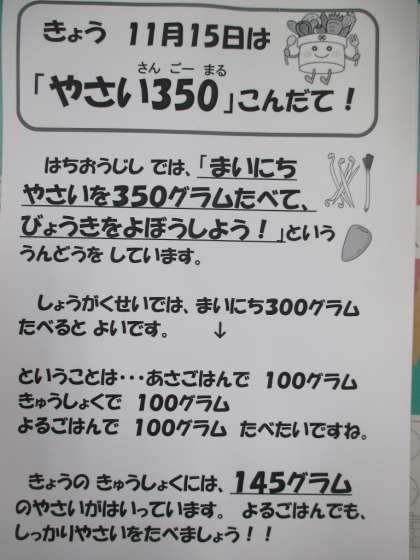 きょう 11月15日は
さん ごー まる
「やさい350」こんだて！
はちおうじし では、「まいにち
やさいを350グラムたべて、
びょうきをよぼうしよう！」という
うんどうを しています。
しょうがくせいでは、まいにち300グラム
たべると よいです。 ↓
ということは・・・あさごはんで 100グラム
きゅうしょくで 100グラム
よるごはんで 100グラム たべたいですね。
きょうの きゅうしょくには、145グラム
のやさいがはいっています。 よるごはんでも、
しっかりやさいをたべましょう！！